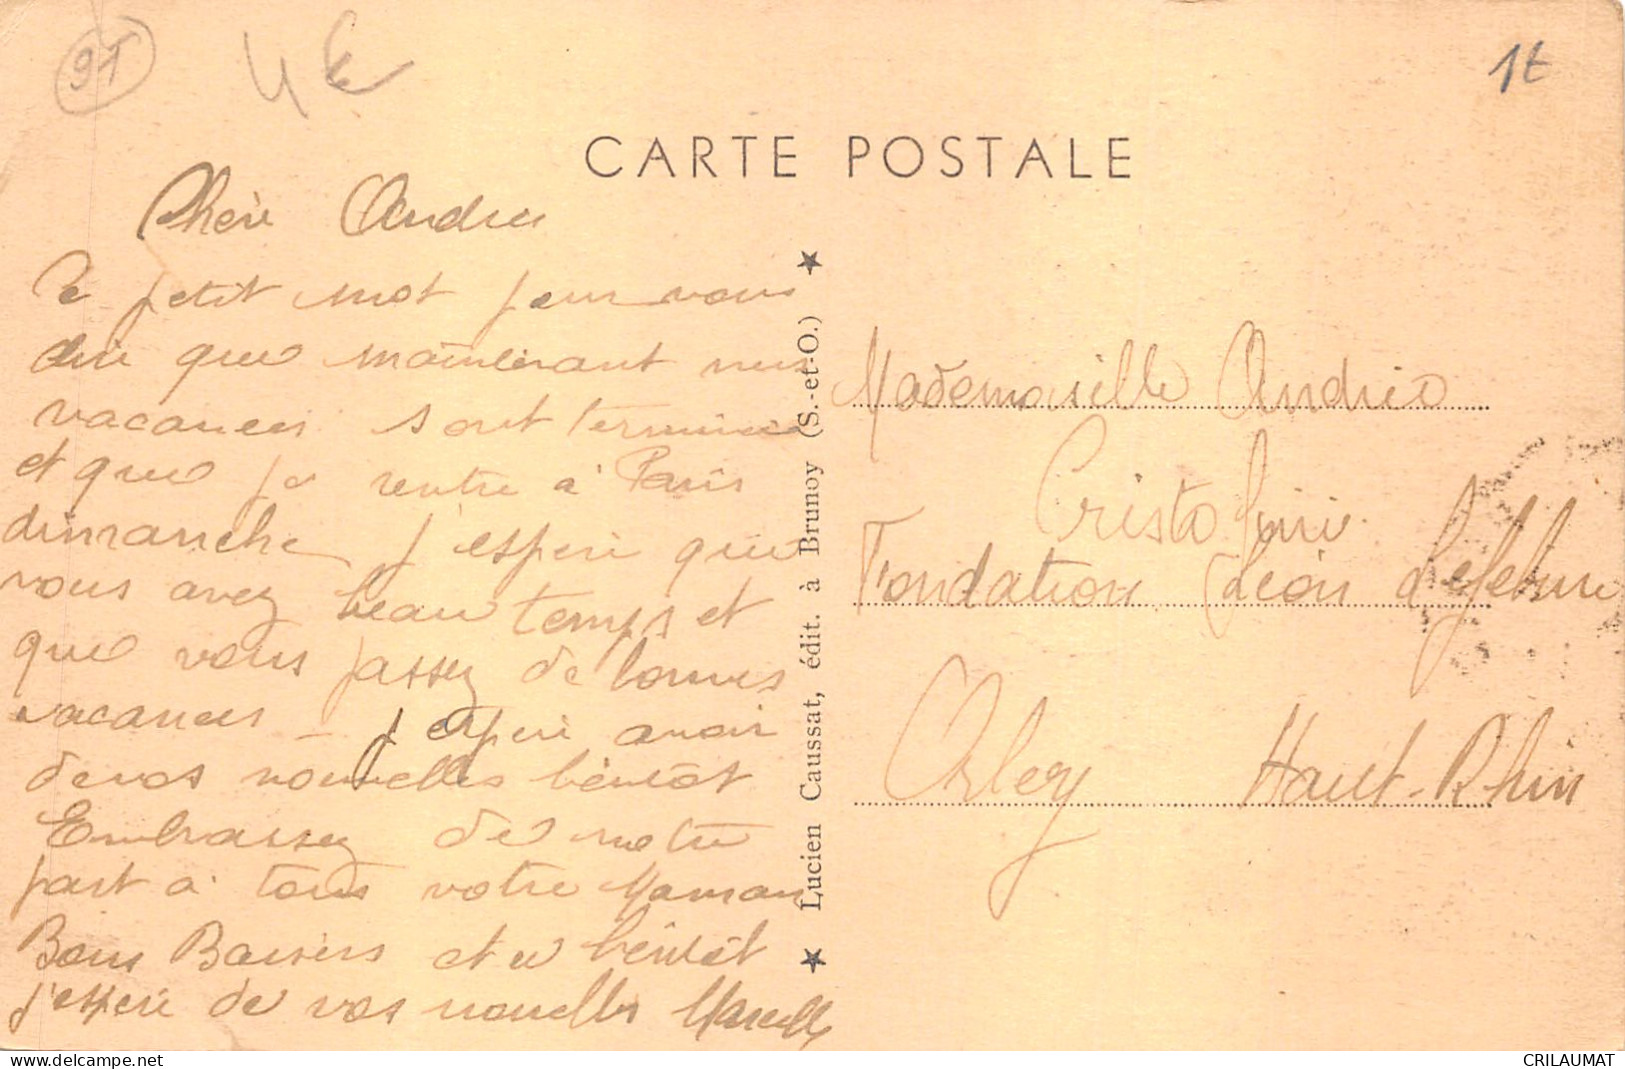 91
4€
1t
CARTE POSTALE
Chère Andrée
Ce petit mot pour vous
dire que maintenant mes
vacances sont terminées
et que je rentre à Paris
dimanche j'espère que
vous avez beau temps et
que vous passez de bonnes
vacances - j'espère avoir
de vos nouvelles bientôt
Embrassez de notre
part à tous votre Maman
Bons Baisers et à bientôt
j'espère de vos nouvelles Marcelle
★ Lucien Caussat, édit. à Brunoy (S.-et-O.) ★
Mademoiselle Andréa
Cristofini
Fondation Léon Lefebure
Orbey Haut-Rhin
www.delcampe.net
CRILAUMAT